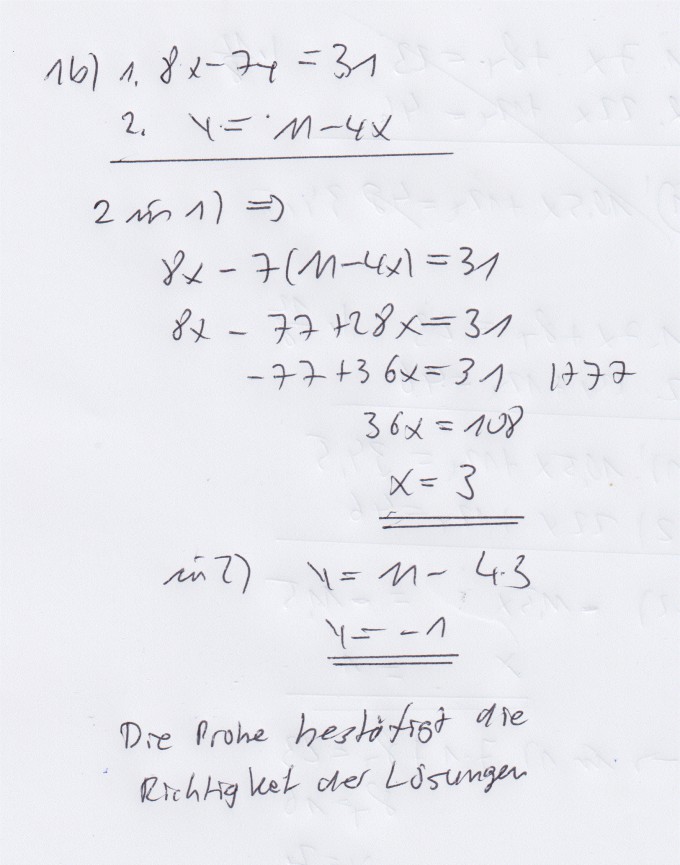 1b) 1. 8x-7y = 31
2. y = 11-4x
2 in 1) ⇒
8x - 7(11-4x) = 31
8x - 77+28x=31
-77+36x=31 |+77
36x = 108
x = 3
in 2) y = 11 - 4·3
y = -1
Die Probe bestätigt die
Richtigket der Lösungen